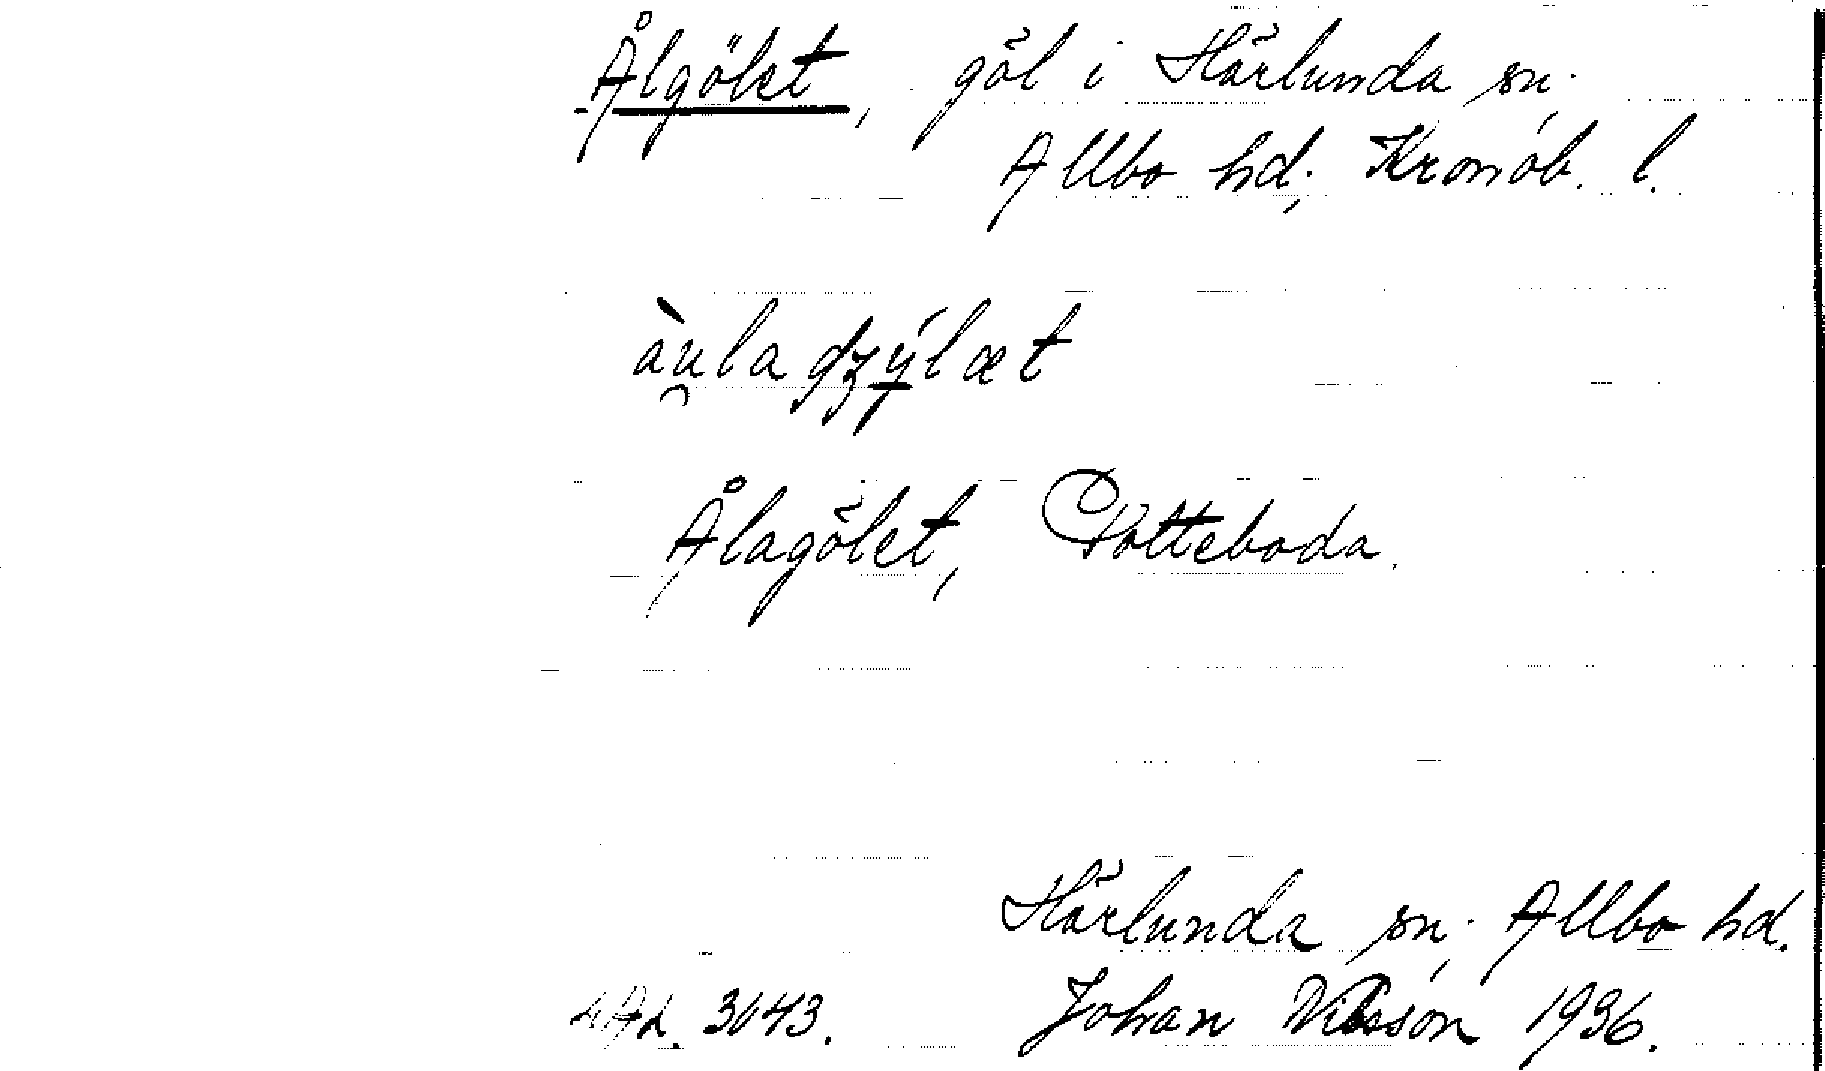 Ålgölet, göl i Härlunda sn,
Allbo hd, Kronob. l.
àu̯laɖʐý̵læt
Ålagölet, Potteboda.
Härlunda sn, Allbo hd.
LAL. 3043. Johan Nilsson 1936.